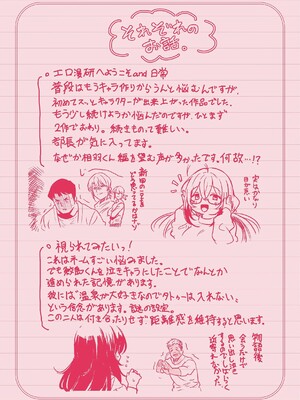 それぞれのお話。
エロ漫研へようこそand 日常
普段はもうキャラ作りからうんと悩むんですが、
初めてスッとキャラクターが出来上がった作品でした。
もう少し続けようか悩んだのですが、ひとまず
2作でおわり。続きものって難しい。
部長が気に入ってます。
なぜか相羽くん編を望む声が多かったです。何故…!?
実はかなり
目が悪い
視られてみたいっ!
これはネームすごい悩みました。
でも敏郎くんを泣きキャラにしたことでなんとか
進められた記憶があります。
彼には“温泉が大好きなのでタトゥーは入れない”
という信念があります。謎の設定。
この二人は付き合ったりせず距離感を維持すると思います。
物語後
会うだけで
思い出し泣き
するのでしばらく
近寄れなかった。